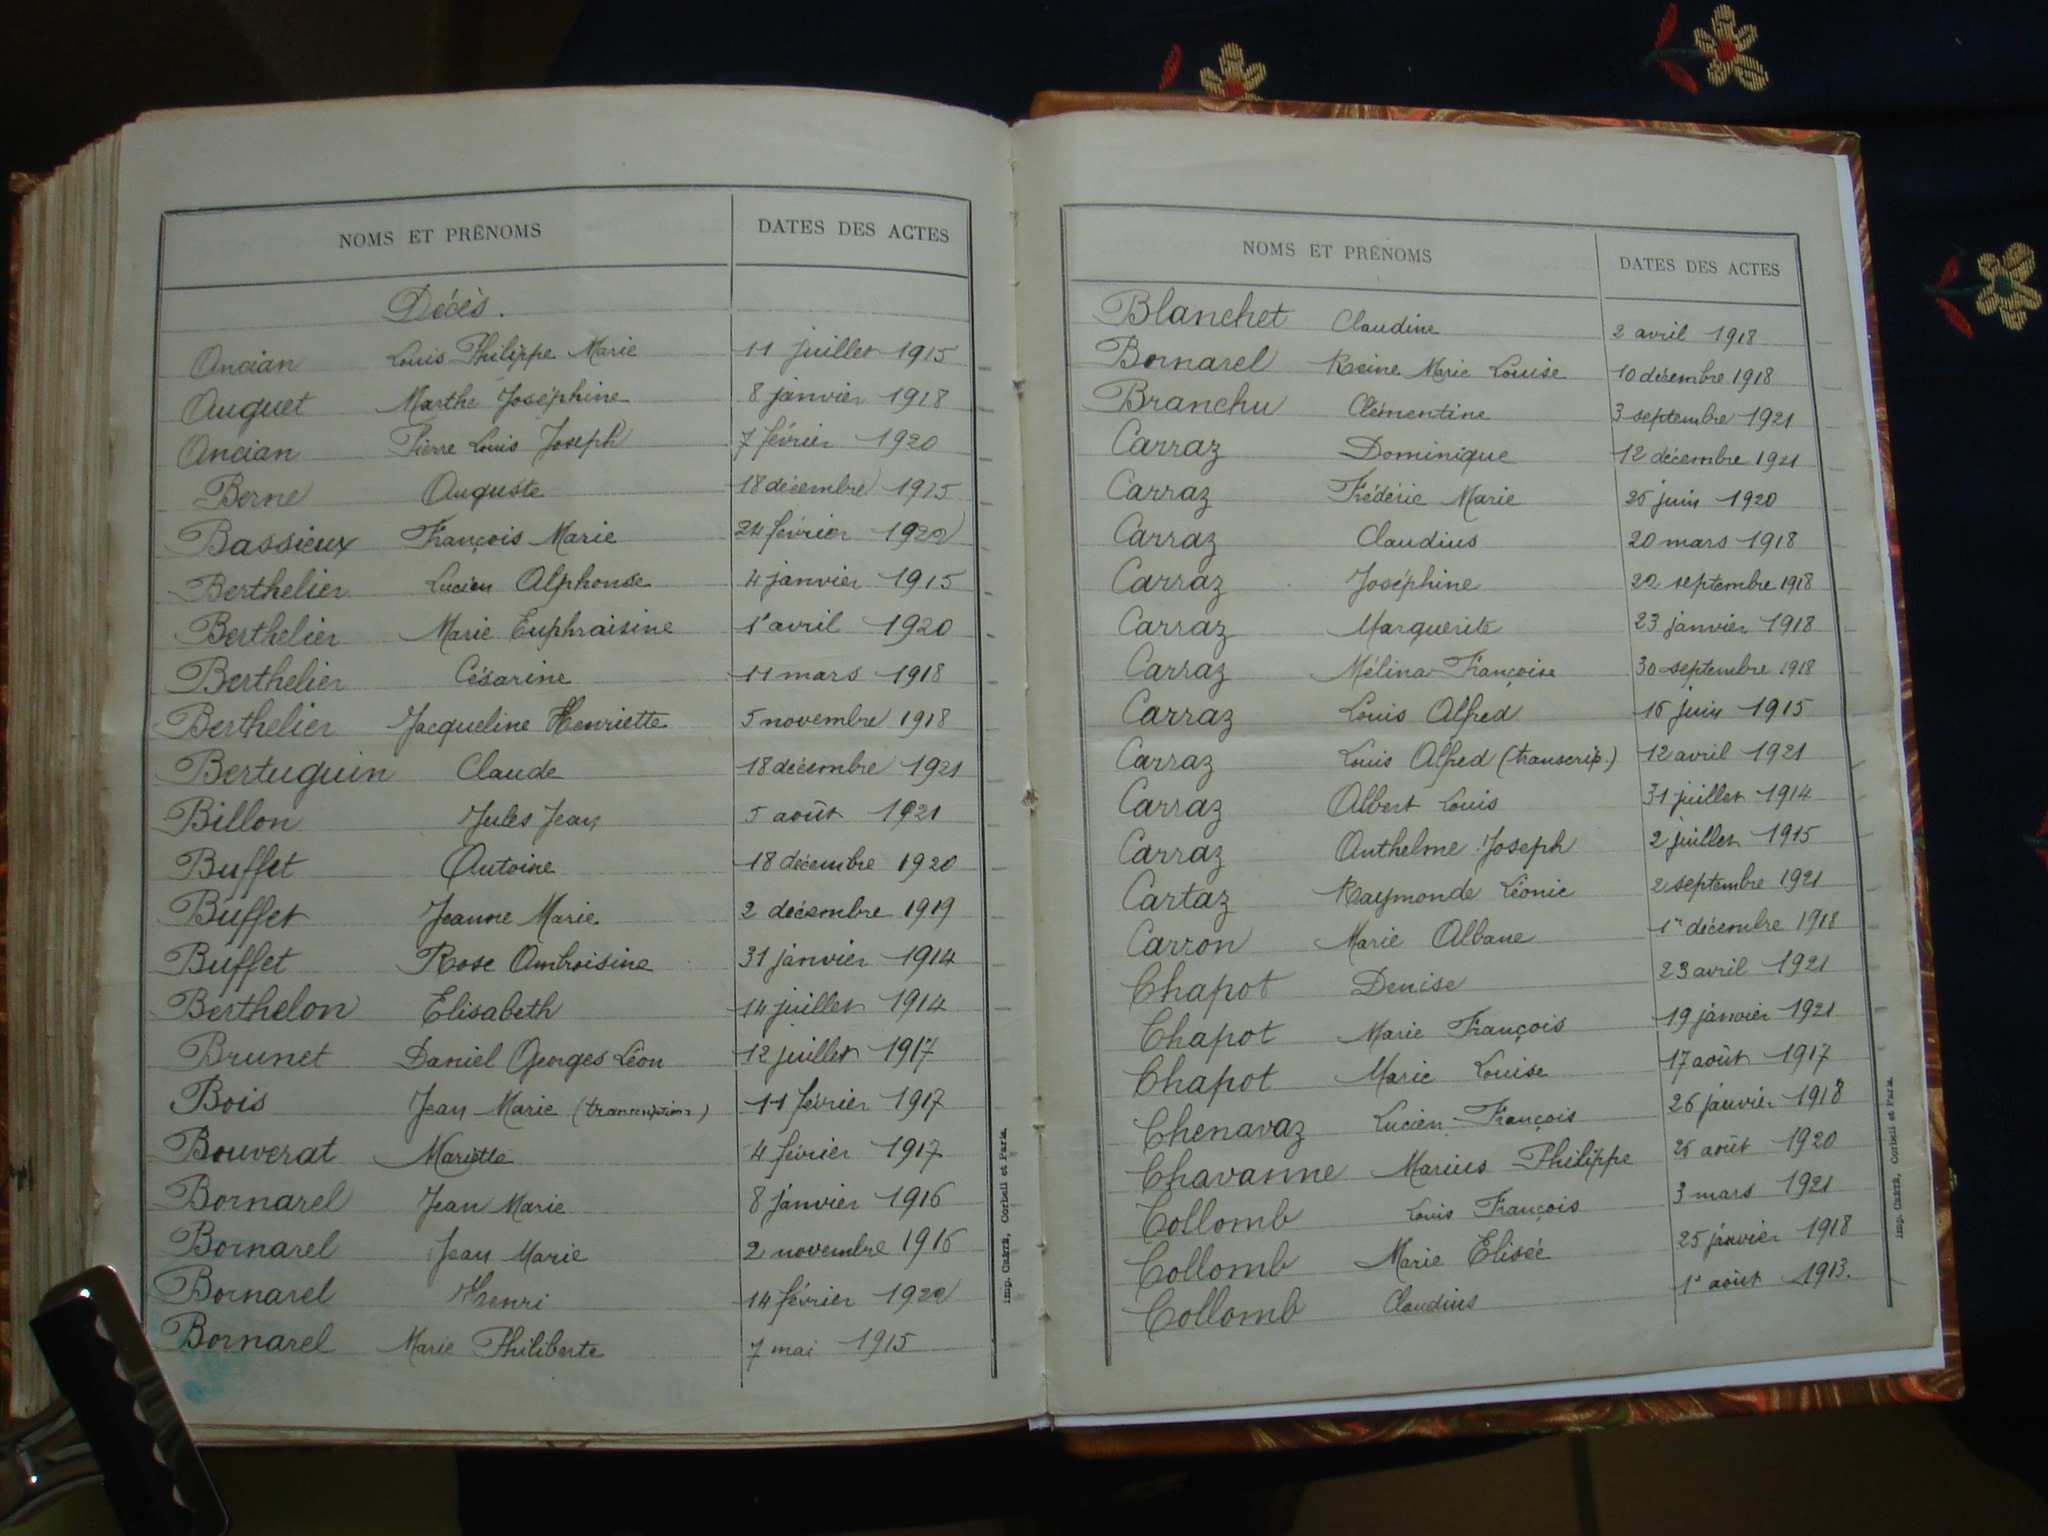 NOMS ET PRÉNOMS DATES DES ACTES
Décès.
Ancian Louis Philippe Marie 11 juillet 1915
Auguet Marthe Joséphine 8 janvier 1918
Ancian Pierre Louis Joseph 7 février 1920
Berne Auguste 18 décembre 1915
Bassieux François Marie 24 février 1920
Berthelier Lucien Alphonse 4 janvier 1915
Berthelier Marie Euphraisine 1e avril 1920
Berthelier Césarine 11 mars 1918
Berthelier Jacqueline Henriette 5 novembre 1918
Bertuguin Claude 18 décembre 1921
Billon Jules Jean 5 août 1921
Buffet Antoine 18 décembre 1920
Buffet Jeanne Marie 2 décembre 1919
Buffet Rose Ambroisine 31 janvier 1914
Berthelon Elisabeth 14 juillet 1914
Brunet Daniel Georges Léon 12 juillet 1917
Bois Jean Marie (transcription) 11 février 1917
Bouverat Mariette 4 février 1917
Bornarel Jean Marie 8 janvier 1916
Bornarel Jean Marie 2 novembre 1916
Bornarel Henri 14 février 1920
Bornarel Marie Philiberte 7 mai 1915
Imp. CRÉTÉ, Corbeil et Paris.
NOMS ET PRÉNOMS DATES DES ACTES
Blanchet Claudine 2 avril 1918
Bornarel Reine Marie Louise 10 décembre 1918
Branchu Clémentine 3 septembre 1921
Carraz Dominique 12 décembre 1921
Carraz Frédéric Marie 26 juin 1920
Carraz Claudius 20 mars 1918
Carraz Joséphine 22 septembre 1918
Carraz Marguerite 23 janvier 1918
Carraz Mélina Françoise 30 septembre 1918
Carraz Louis Alfred 16 juin 1915
Carraz Louis Alfred (transcrip.) 12 avril 1921
Carraz Albert Louis 31 juillet 1914
Carraz Anthelme Joseph 2 juillet 1915
Cartaz Raymonde Léonie 2 septembre 1921
Carron Marie Albane 1er décembre 1918
Chapot Denise 23 avril 1921
Chapot Marie François 19 janvier 1921
Chapot Marie Louise 17 août 1917
Chenavaz Lucien-François 26 janvier 1918
Chavanne Marius Philippe 26 août 1920
Collomb Louis François 3 mars 1921
Collomb Marie Elisée 25 janvier 1918
Collomb Claudius 1e août 1913.
Imp. CRÉTÉ, Corbeil et Paris.